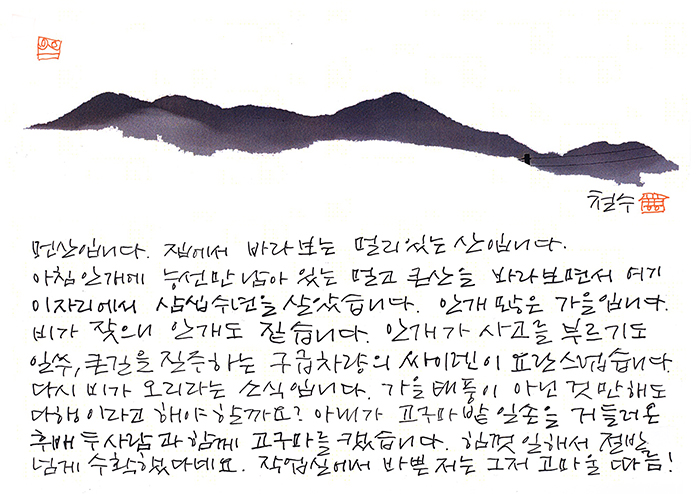 철수
먼산입니다. 집에서 바라보는 멀리있는 산입니다.
아침 안개에 능선만 남아 있는 멀고 큰산을 바라보면서 여기
이자리에서 삼십수년을 살았습니다. 안개 많은 가을입니다.
비가 잦으니 안개도 짙습니다. 안개가 사고를 부르기도
일쑤, 큰길을 질주하는 구급차량의 싸이렌이 요란스럽습니다.
다시 비가 오리라는 소식입니다. 가을 태풍이 아닌 것만 해도
다행이라고 해야 할까요? 아내가 고구마밭 일손을 거들러온
후배 두사람과 함께 고구마를 캤습니다. 힘껏 일해서 절반
넘게 수확했다네요. 작업실에서 바쁜 저는 그저 고마울 따름!